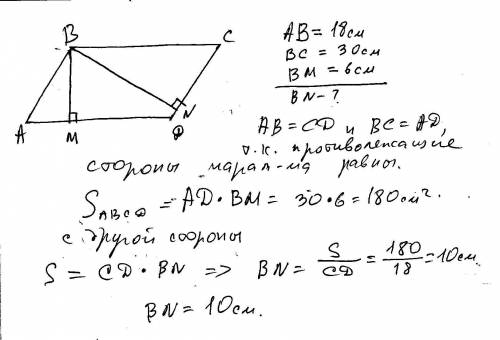 B C
A M D N
AB = 18см
BC = 30см
BM = 6см
BN - ?
AB = CD и BC = AD,
т.к. противолежащие
стороны парал-ма равны.
S_ABCD = AD · BM = 30 · 6 = 180 см².
с другой стороны
S = CD · BN => BN = S/CD = 180/18 = 10см
BN = 10см.